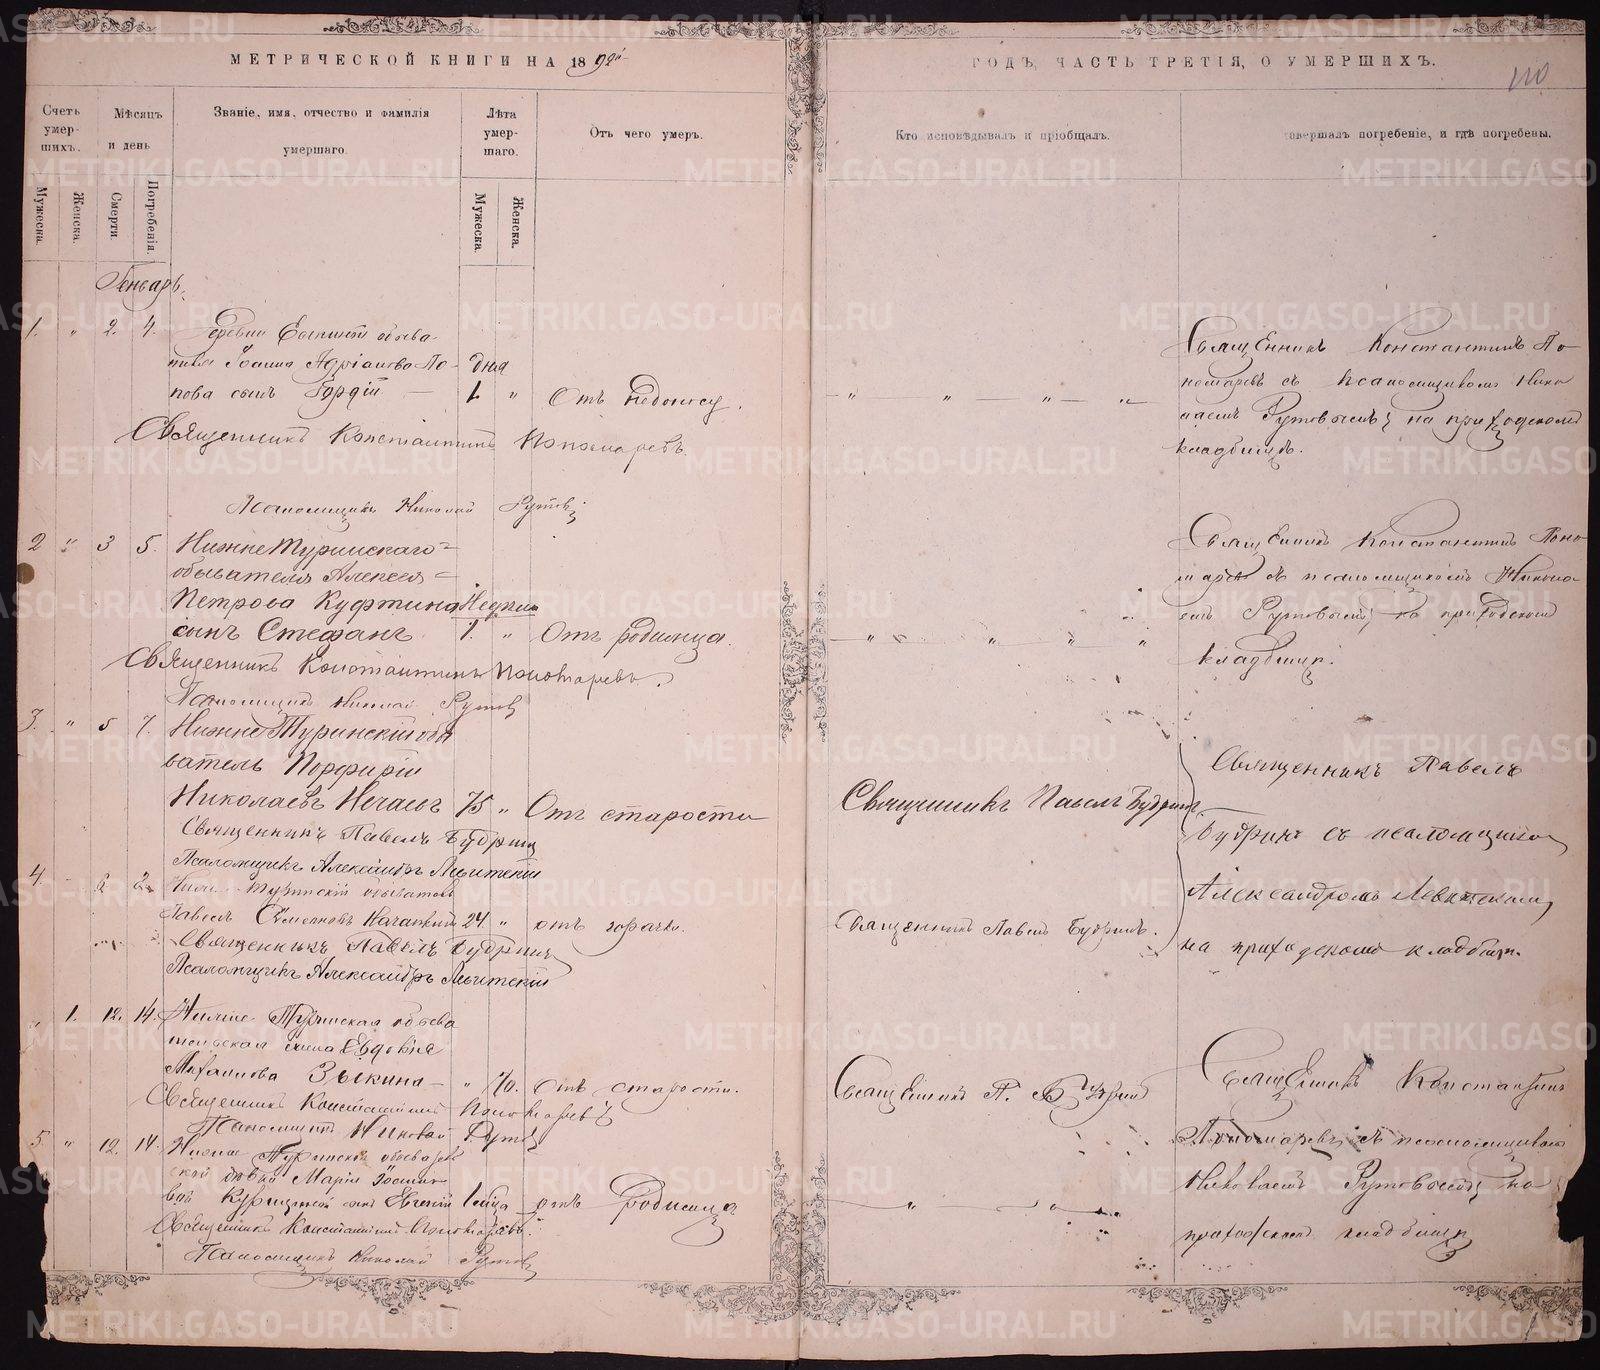 МЕТРИЧЕСКОЙ КНИГИ НА 1892
ГОДЪ, ЧАСТЬ ТРЕТІЯ, О УМЕРШИХЪ.
110
Счетъ умер-шихъ.
Мѣсяцъ и день
Званіе, имя, отчество и фамилія
умершаго.
Лѣта умер-шаго.
Отъ чего умеръ.
Кто исповѣдывалъ и пріобщалъ.
совершалъ погребеніе, и гдѣ погребены.
Мужеска.
Женска.
Смерти.
Погребенія.
Мужеска.
Женска.
Генварь.
1. " 2. 4.
Деревни обыва-
теля Іоанна Адріанова По-
пова сынъ Гордій
дня
1. "
Отъ недонису.
Священникъ Константинъ По-
номаревъ съ псаломщикомъ Нико
лаемъ Рутовымъ на приходскомъ
кладбищѣ.
Священникъ Константинъ Пономаревъ.
Псаломщикъ Николай Рутовъ
2 " 3 5.
НижнеТуринскаго
обывателя Алексея
Петрова Куфтина
сынъ Стефанъ
Недѣли
1. "
Отъ родимца.
Священникъ Константинъ Поно
маревъ съ псаломщикомъ Никола
емъ Рутовымъ на приходскомъ
кладбищѣ.
Священникъ Константинъ Пономаревъ.
Псаломщикъ Николай Рутовъ
3. " 5 7.
НижнеТуринскій обы
ватель Порфирій
Николаевъ Нечаевъ
75 "
Отъ старости
Священникъ Павелъ Будринъ
Священникъ Павелъ
Будринъ съ псаломщикомъ
Александромъ Левитскимъ,
на приходскомъ кладбищѣ.
Священникъ Павелъ Будринъ
Псаломщикъ Александръ Левитскій
4.
Туринскій обыватель
Павелъ Симеоновъ
24 "
отъ горячки.
Священникъ Павелъ Будринъ.
Священникъ Павелъ Будринъ
Псаломщикъ Александръ Левитскій
" 1. 12. 14.
Нижне-Туринская обыва
тельская жена Евдокія
Михаилова Зыкина
" 70.
отъ старости.
Священникъ П. Будринъ
Священникъ Константинъ
Пономаревъ съ псаломщикомъ
Николаемъ Рутовымъ на
приходскомъ кладбищѣ
Священникъ Константинъ Пономаревъ
Псаломщикъ Николай Рутовъ
5. " 12. 14.
Нижне Туринской обыватель
ской дѣвки Маріи Іоанно
вой сынъ Евгеній
1 мѣсяца
отъ родимца
Священникъ Константинъ Пономаревъ.
Псаломщикъ Николай Рутовъ
METRIKI.GASO-URAL.RU